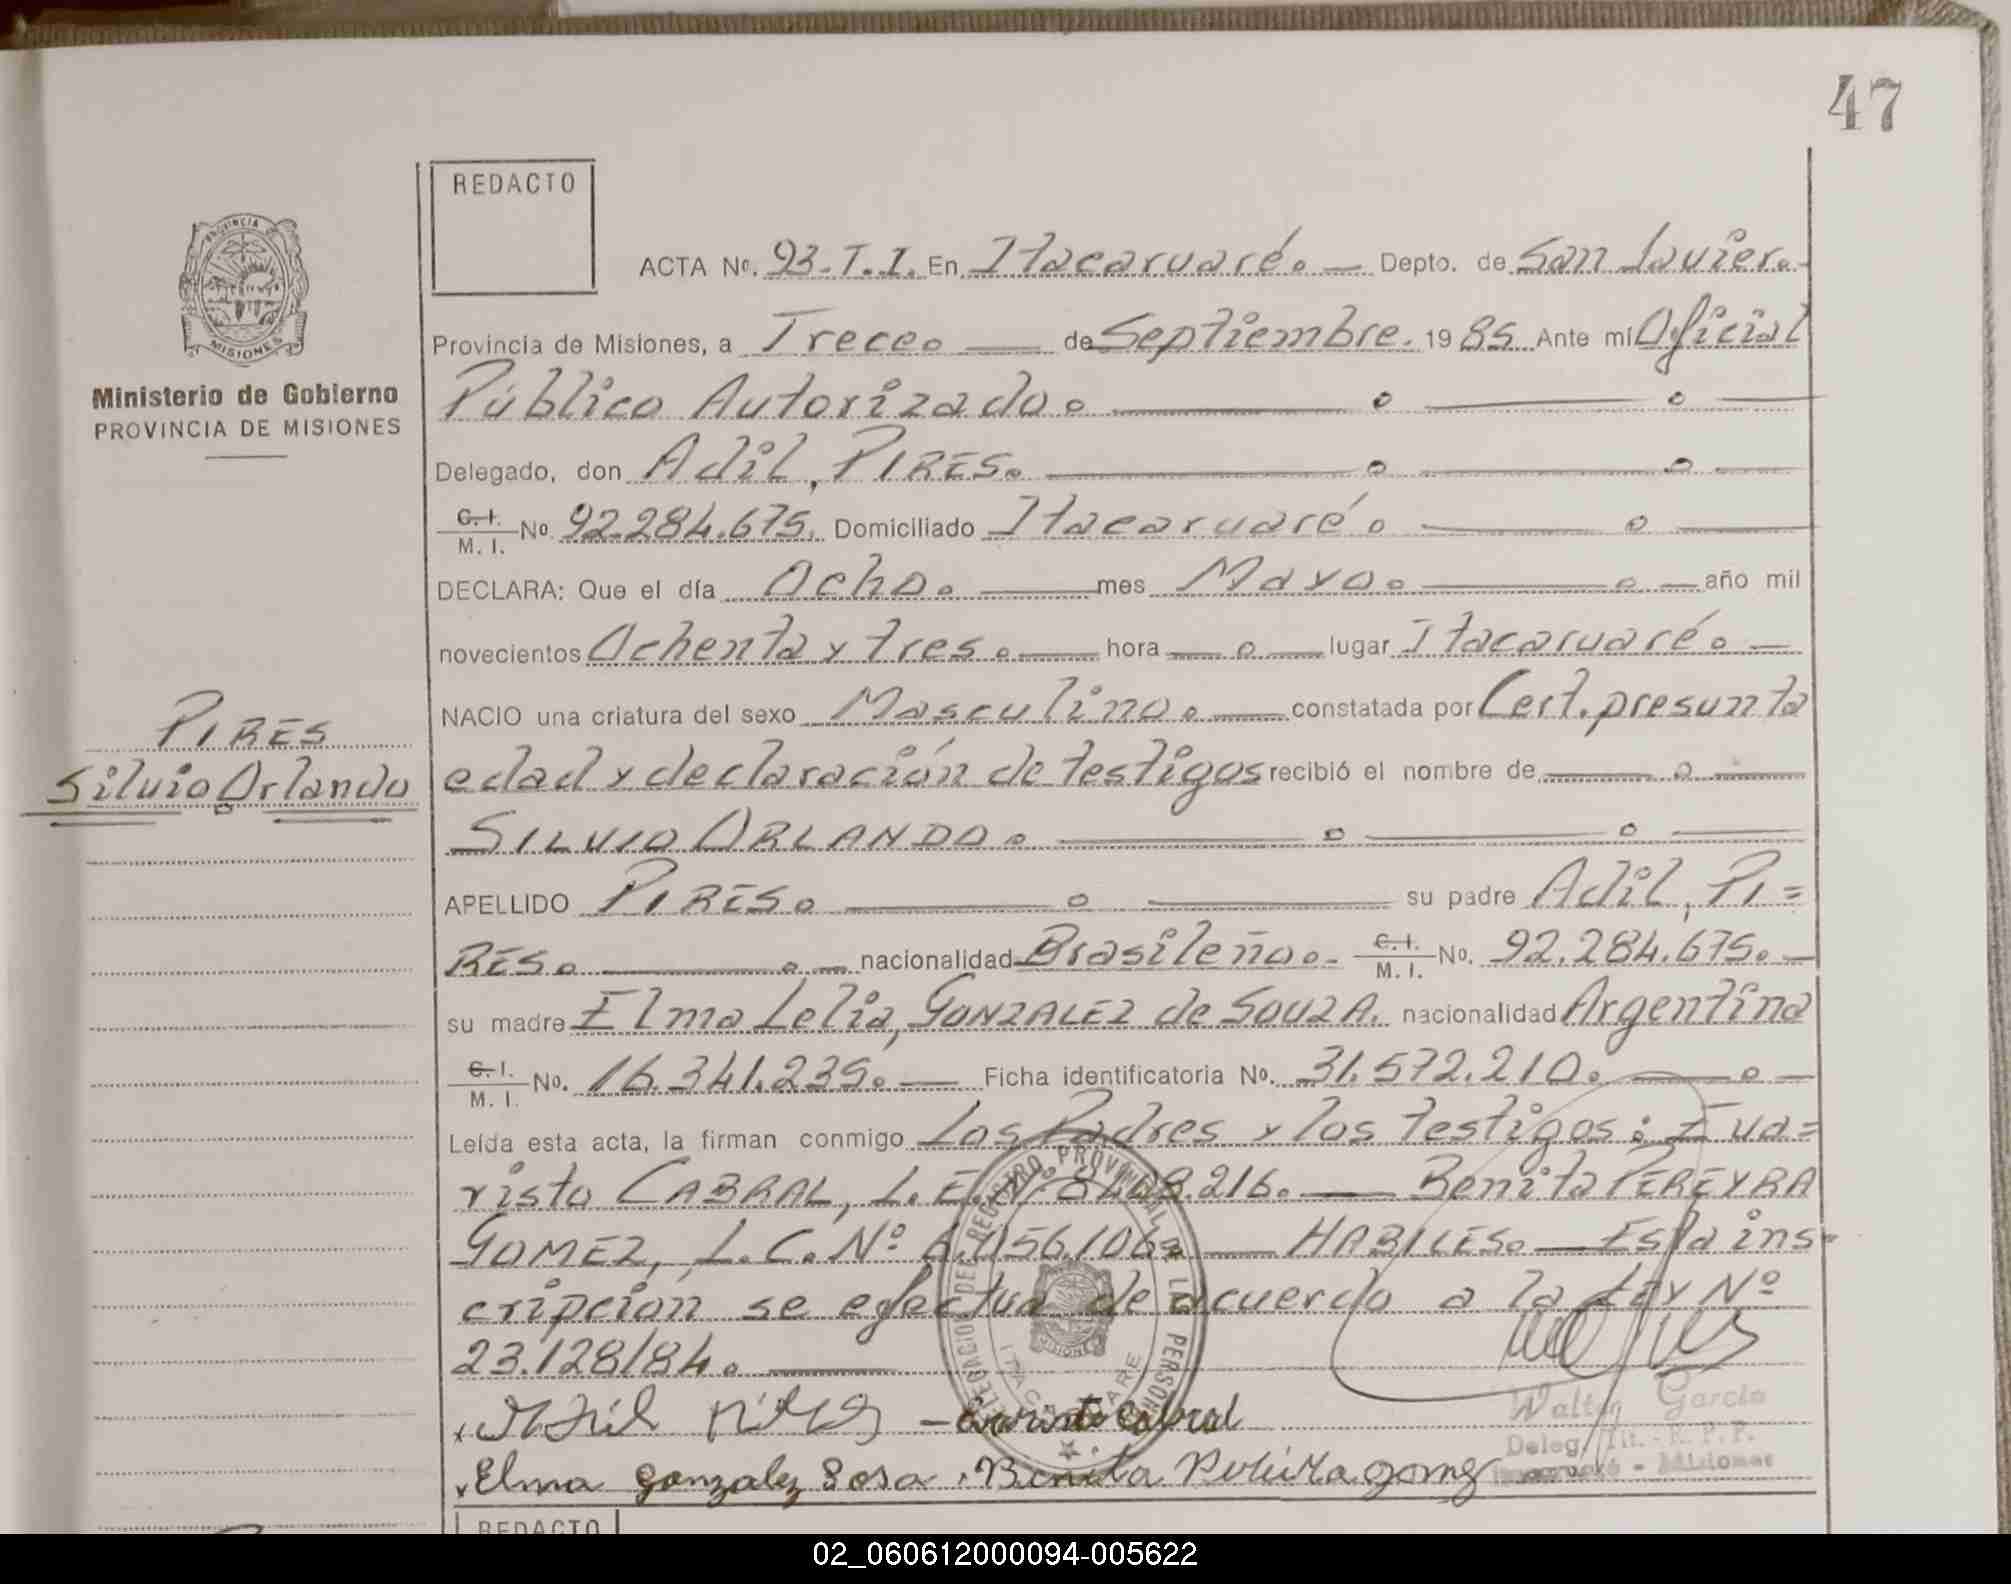 47
REDACTO
PROVINCIA DE
MISIONES
Ministerio de Gobierno
PROVINCIA DE MISIONES
ACTA Nº. 93-T.I. En Itacaruaré. — Depto. de San Javier.-
Provincia de Misiones, a Trece. — de Septiembre. 1985 Ante mi Oficial
Público Autorizado.
Delegado, don Adil, PIRES.
C.I.
M. I. Nº 92.284.675. Domiciliado Itacaruaré.
DECLARA: Que el día Ocho. — mes Mayo. — año mil
novecientos Ochenta y tres. — hora — lugar Itacaruaré. —
NACIO una criatura del sexo Masculino. — constatada por Cert. presunta
PIRES
edad y declaración de testigos recibió el nombre de
Silvio Orlando
SILVIO ORLANDO.
APELLIDO PIRES. — su padre Adil, PI=
RES. — nacionalidad Brasileño.- C.I.
M. I. Nº. 92.284.675. —
su madre Elma Lelia, GONZALEZ de SOUZA. nacionalidad Argentina
C.I.
M. I. Nº. 16.341.239. — Ficha identificatoria Nº. 31.572.210.
Leída esta acta, la firman conmigo Los Padres y los testigos: Eva=
risto CABRAL, L.E. Nº 216. — Benita PEREYRA
GOMEZ, L.C. Nº — HABILES. — Esta ins-
cripción se efectua de acuerdo a la Ley Nº
23.128/84. —
DELEGACION DEL REGISTRO PROVINCIAL DE LAS PERSONAS
Adil Pires — Evaristo Cabral
Walter Garcia
Deleg. Tit. - R. P. P.
Itacaruaré - Misiones
Elma Gonzalez Sosa. Benita Gomez
REDACTO
02_060612000094-005622